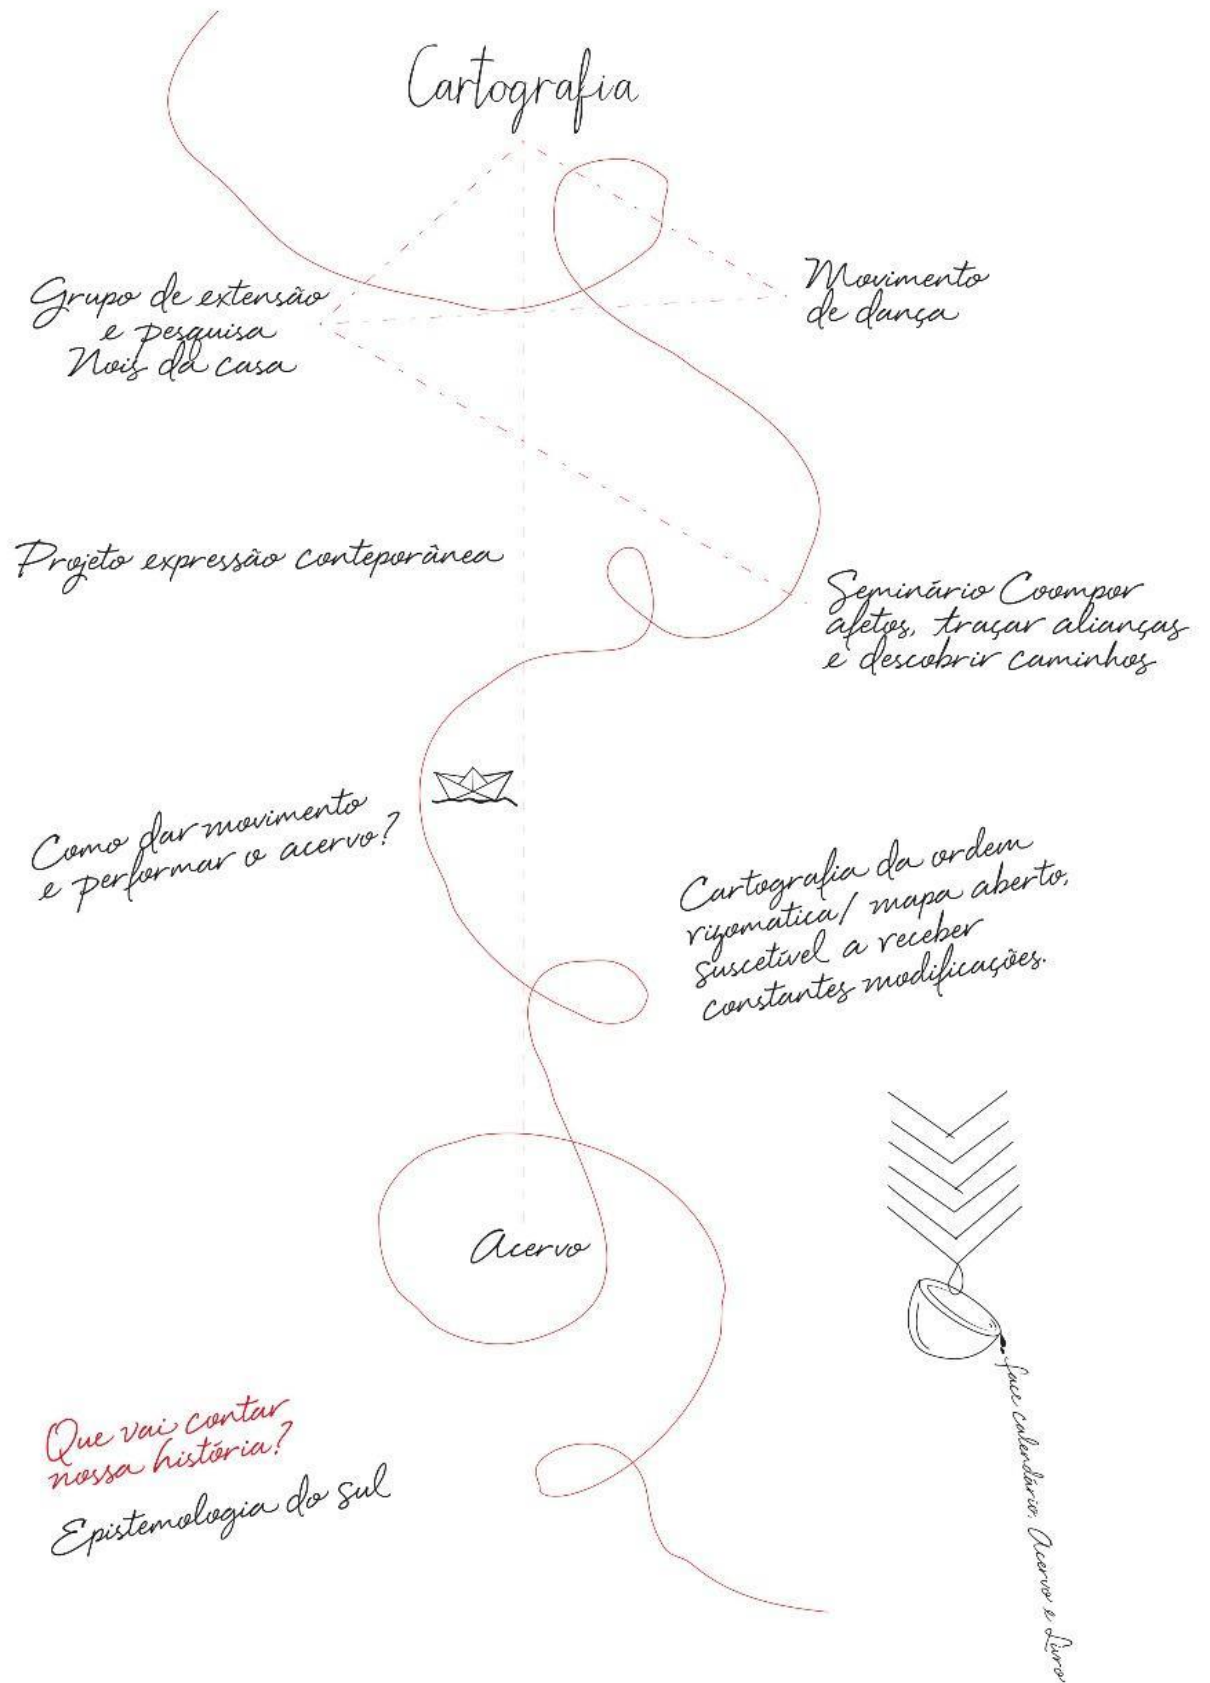 Cartografia
Grupo de extensão
e pesquisa
Nois da casa
Movimento
de dança
Projeto expressão conteporânea
Seminário Coompor
afetos, traçar alianças
e descobrir caminhos
Como dar movimento
e performar o acervo?
Cartografia da ordem
rizomatica/ mapa aberto,
suscetível a receber
constantes modificações.
Acervo
face calendário. Acervo e Livro
Que vai contar
nossa história?
Epistemologia do sul